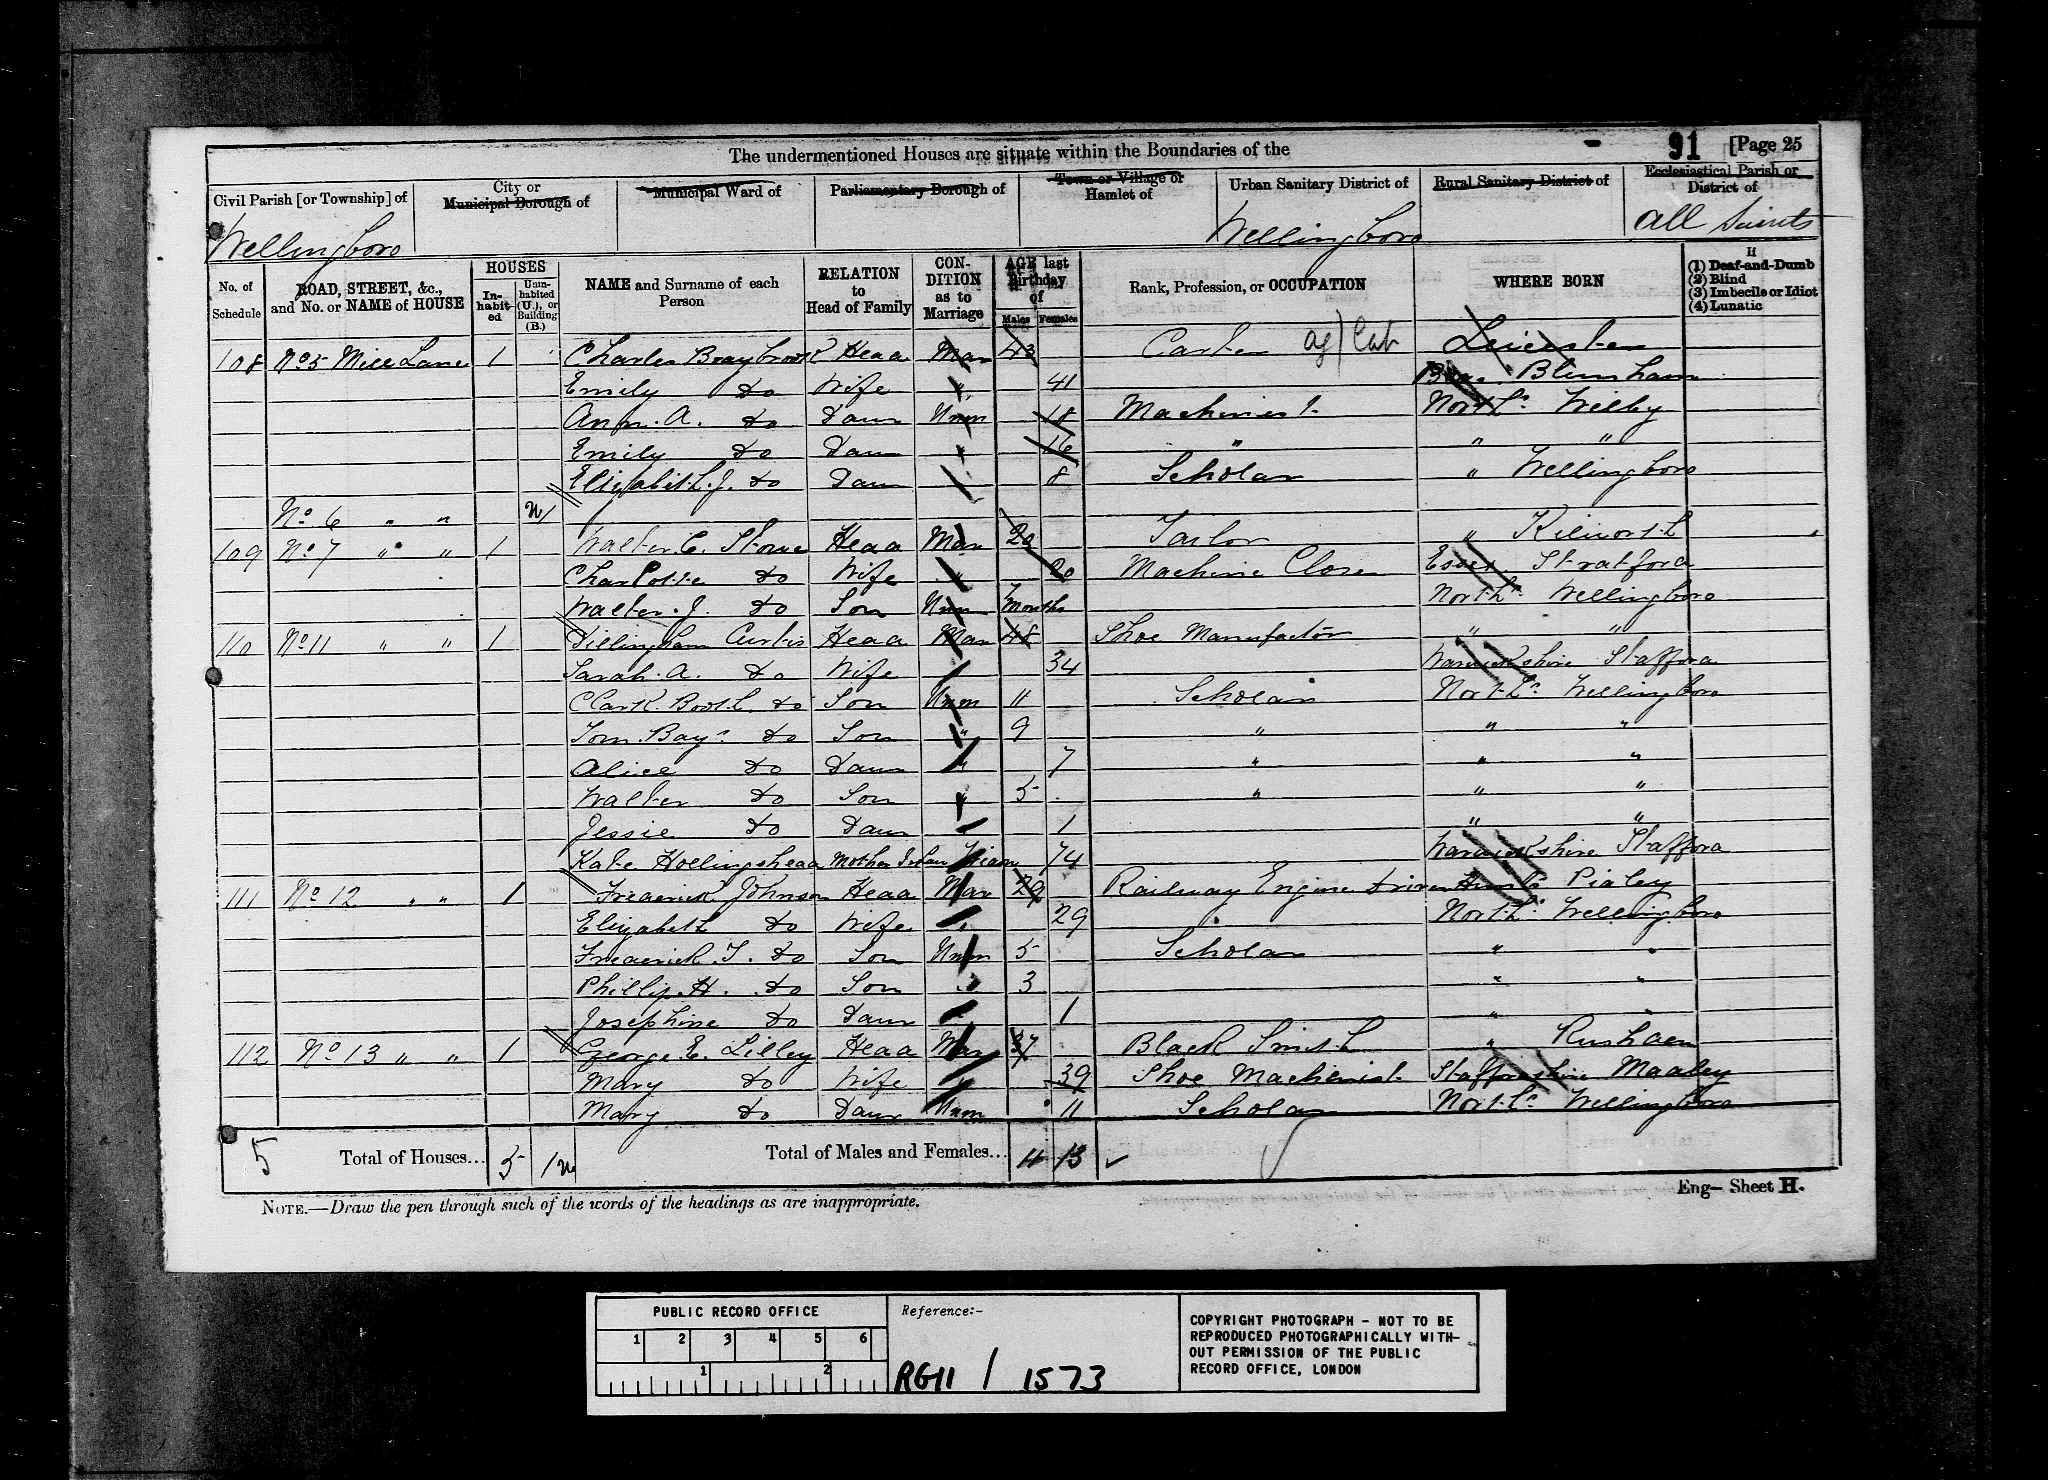 The undermentioned Houses are situate within the Boundaries of the
91 [Page 25
Civil Parish [or Township] of
City or Municipal Borough of
Municipal Ward of
Parliamentary Borough of
Town or Village or Hamlet of
Urban Sanitary District of
Rural Sanitary District of
Ecclesiastical Parish or District of
Wellingboro Wellingboro All Saints
No. of Schedule
ROAD, STREET, &c., and No. or NAME of HOUSE
HOUSES
In-habit-ed
Unin-habited (U.), or Building (B.)
NAME and Surname of each Person
RELATION to Head of Family
CON-DITION as to Marriage
AGE last Birthday of
Males Females
Rank, Profession, or OCCUPATION
WHERE BORN
H
(1) Deaf-and-Dumb
(2) Blind
(3) Imbecile or Idiot
(4) Lunatic
108 No 5 Mill Lane 1 Charles Braybrook Head Mar 43 Carter ag/Lab Leicester
Emily do Wife " 41 Blunsham
Ann. A. do Daur Unm 18 Machinist North. Wilby
Emily do Daur " 16 " " "
Elizabeth. J. do Daur 8 Scholar " Wellingboro
No 6 " " U
109 No 7 " " 1 Walter. C. Stowe Head Mar 20 Tailor " Kilworth
Charlotte do Wife 20 Machine Closer Essex Stratford
Walter. J. do Son Unm 7 months North. Wellingboro
110 No 11 " " 1 Tillingham Curtis Head Mar 48 Shoe Manufactor " "
Sarah. A. do Wife 34 Warwickshire Stafford
Clark Booth. do Son Unm 11 Scholar North. Wellingboro
Tom. Bays. do Son " 9 " " "
Alice do Daur " 7 " " "
Walter do Son " 5 " " "
Jessie do Daur 1 " "
Kate Hollingshead Mother In Law Widow 74 Warwickshire Stafford
111 No 12 " " 1 Frederick Johnson Head Mar 29 Railway Engine Driver Hunts Pidley
Elizabeth do Wife 29 North. Wellingboro
Frederick. T. do Son Unm 5 Scholar " "
Phillip. H. do Son " 3 " "
Josephine do Daur 1 " "
112 No 13 " " 1 George E. Lilley Head Mar 37 Black Smith " Rushden
Mary do Wife 39 Shoe Machinist Staffordshire Madley
Mary do Daur Unm 11 Scholar North. Wellingboro
5 Total of Houses... 5 1 U Total of Males and Females... 11 13
NOTE.—Draw the pen through such of the words of the headings as are inappropriate.
Eng— Sheet H.
PUBLIC RECORD OFFICE
1 2 3 4 5 6
1 2
Reference:-
RG11 / 1573
COPYRIGHT PHOTOGRAPH - NOT TO BE
REPRODUCED PHOTOGRAPHICALLY WITH-
OUT PERMISSION OF THE PUBLIC
RECORD OFFICE, LONDON